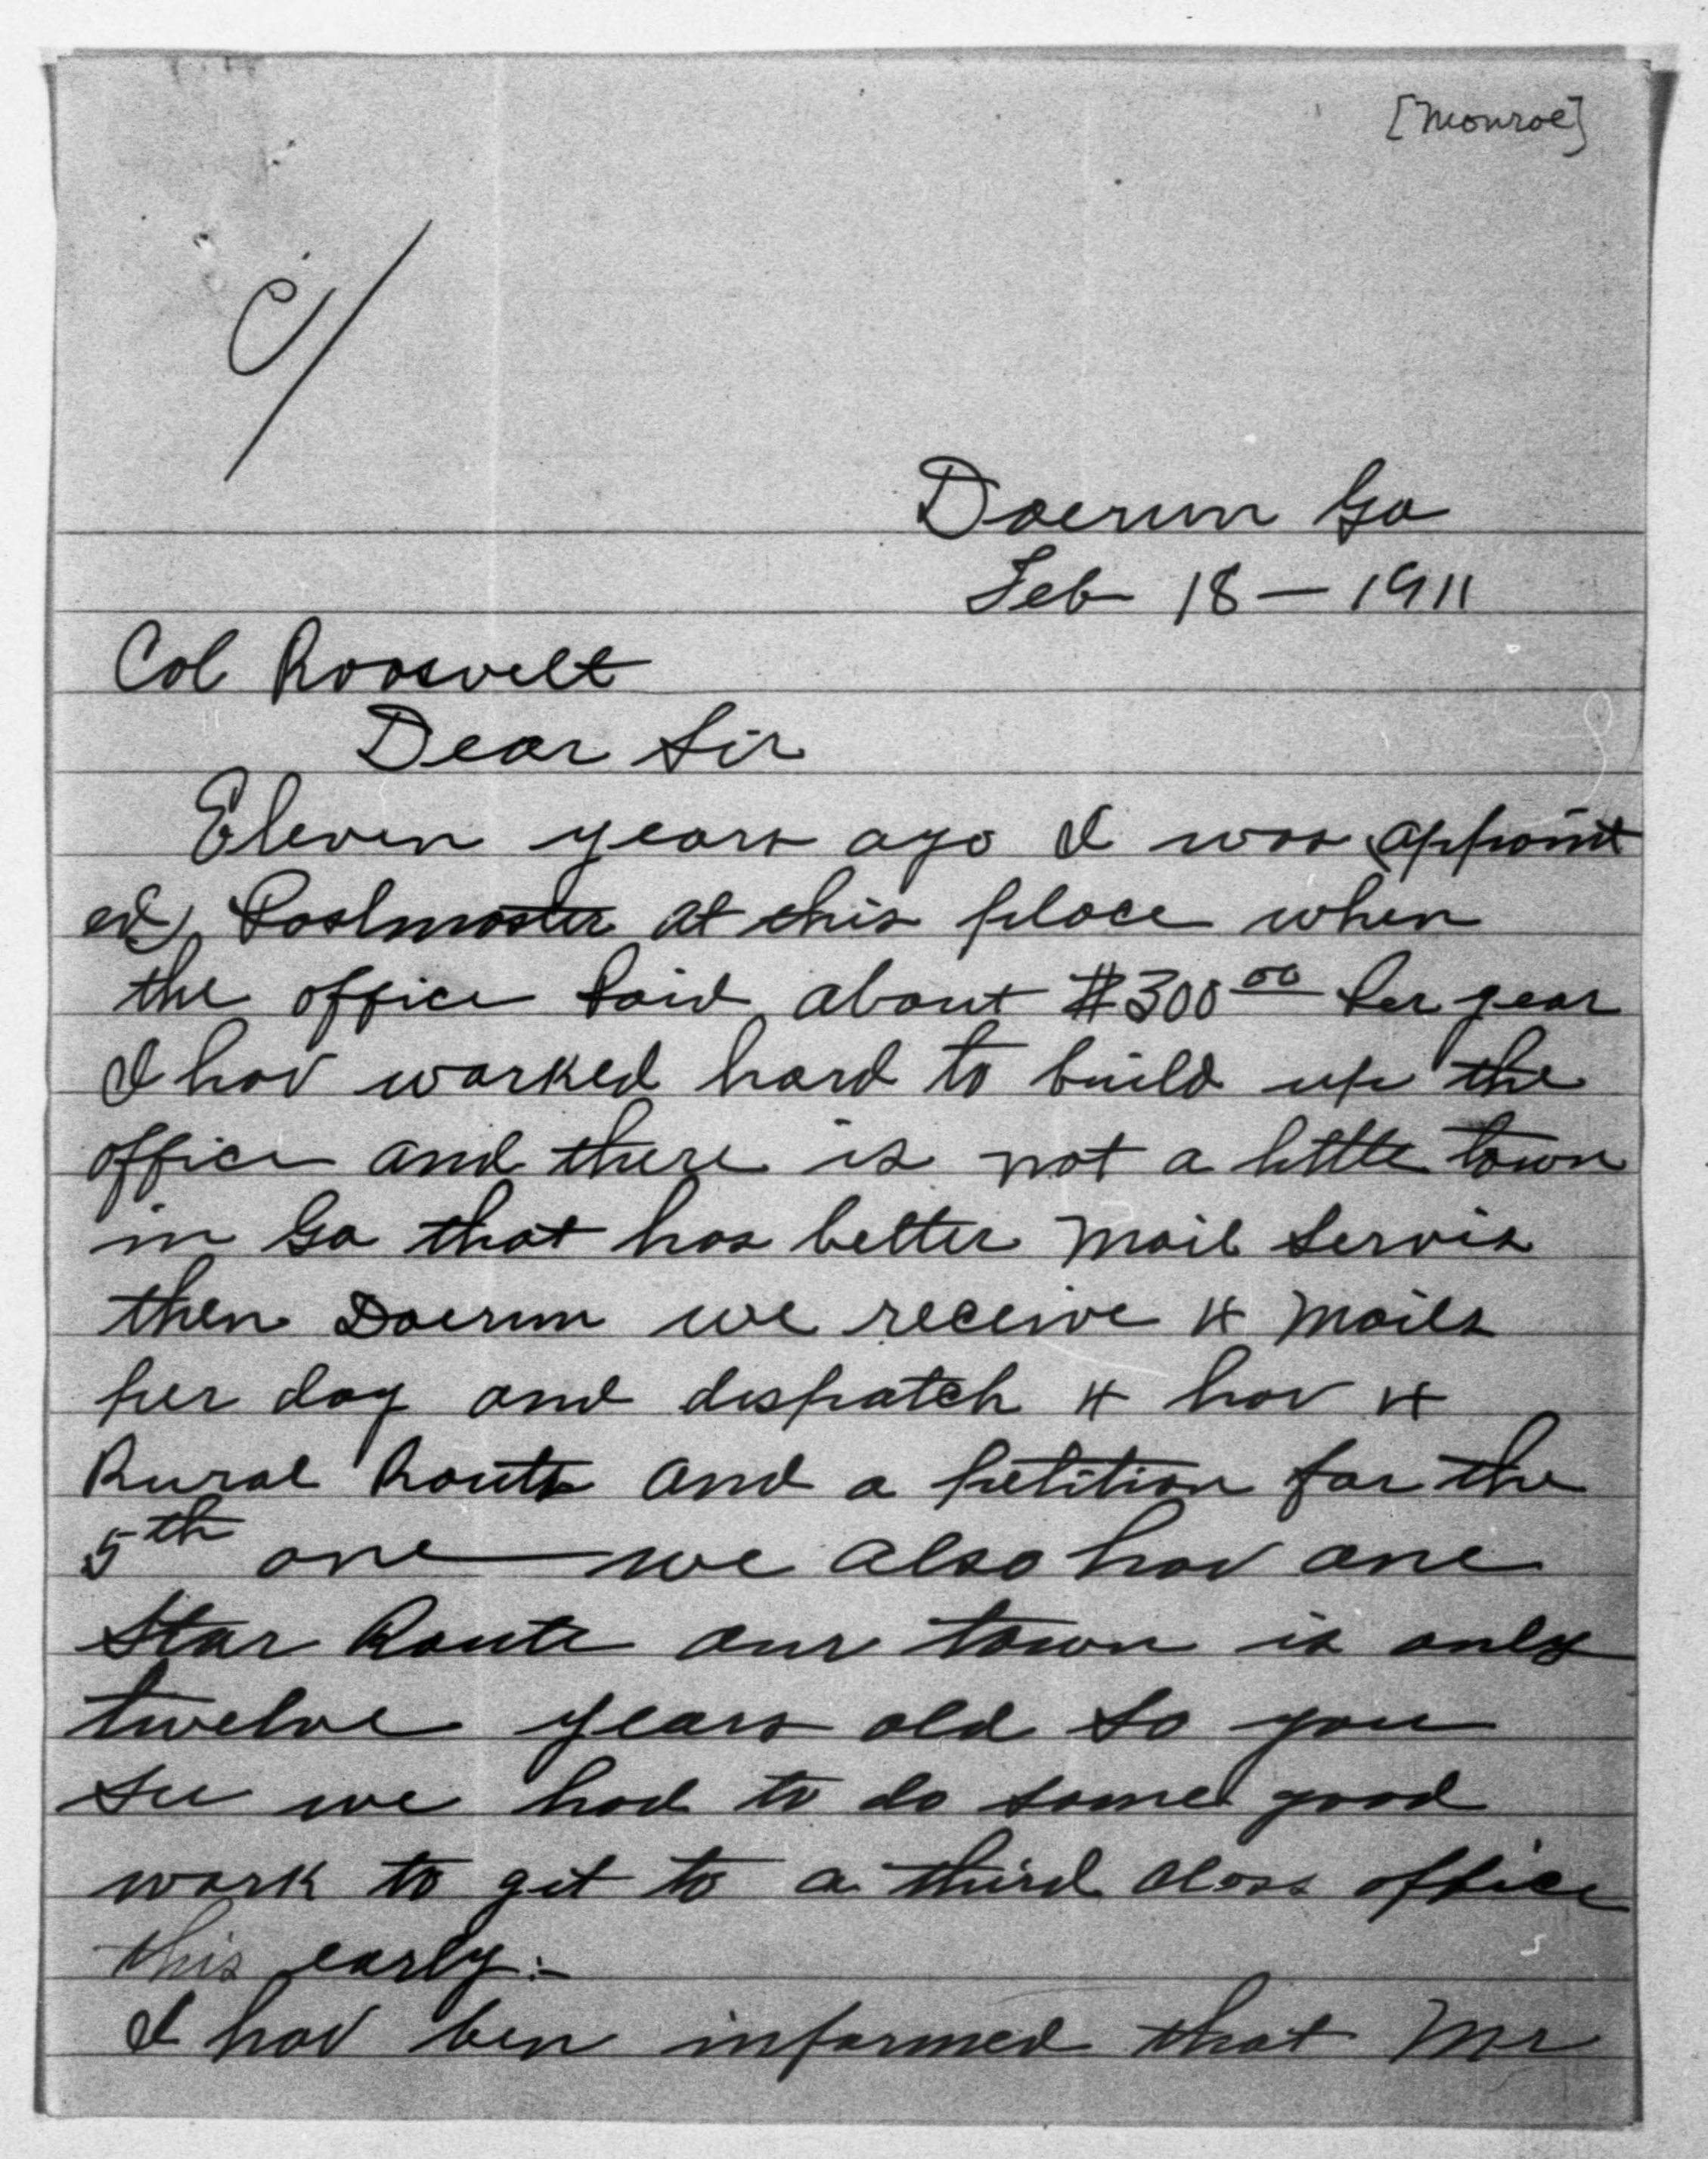 [Monroe]
C/
Doerun Ga
Feb 18 — 1911
Col Roosvelt
Dear Sir
Eleven years ago I was appoint
ed Postmaster at this place when
the office Paid about $300 00 Per year
I hav worked hard to build up the
office and there is not a little town
in Ga that has better Mail Servis
then Doerun we receive 4 Mails
per day and dispatch 4 hav 4
Rural Routs and a petition for the
5th one — we also hav one
Star Route our town is only
twelve years old So you
See we had to do some good
work to git to a third class office
this early :-
I hav ben informed that Mr